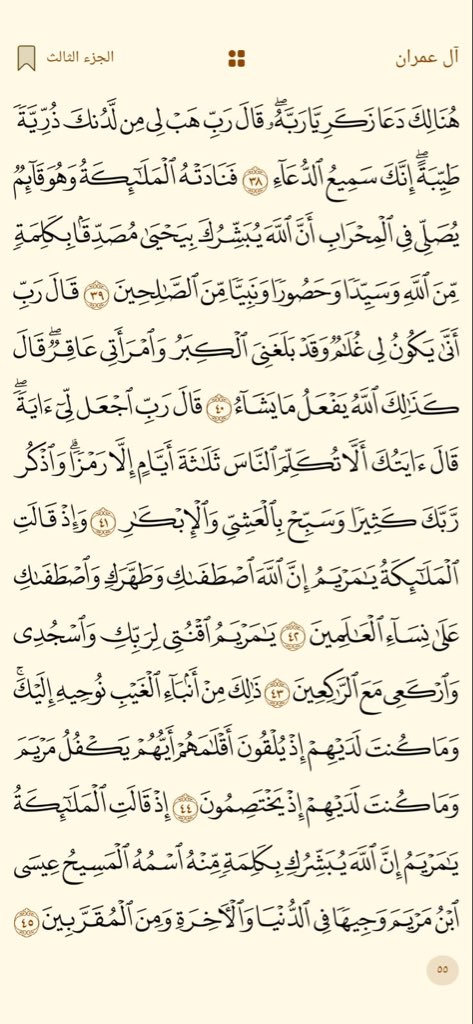 آل عمران
الجزء الثالث
هُنَالِكَ دَعَا زَكَرِيَّا رَبَّهُۥۖ قَالَ رَبِّ هَبۡ لِي مِن لَّدُنكَ ذُرِّيَّةٗ
طَيِّبَةًۖ إِنَّكَ سَمِيعُ ٱلدُّعَآءِ ٣٨ فَنَادَتۡهُ ٱلۡمَلَٰٓئِكَةُ وَهُوَ قَآئِمٞ
يُصَلِّي فِي ٱلۡمِحۡرَابِ أَنَّ ٱللَّهَ يُبَشِّرُكَ بِيَحۡيَىٰ مُصَدِّقَۢا بِكَلِمَةٖ
مِّنَ ٱللَّهِ وَسَيِّدٗا وَحَصُورٗا وَنَبِيّٗا مِّنَ ٱلصَّٰلِحِينَ ٣٩ قَالَ رَبِّ
أَنَّىٰ يَكُونُ لِي غُلَٰمٞ وَقَدۡ بَلَغَنِيَ ٱلۡكِبَرُ وَٱمۡرَأَتِي عَاقِرٞۖ قَالَ
كَذَٰلِكَ ٱللَّهُ يَفۡعَلُ مَا يَشَآءُ ٤٠ قَالَ رَبِّ ٱجۡعَل لِّيٓ ءَايَةٗۖ
قَالَ ءَايَتُكَ أَلَّا تُكَلِّمَ ٱلنَّاسَ ثَلَٰثَةَ أَيَّامٍ إِلَّا رَمۡزٗاۗ وَٱذۡكُر
رَّبَّكَ كَثِيرٗا وَسَبِّحۡ بِٱلۡعَشِيِّ وَٱلۡإِبۡكَٰرِ ٤١ وَإِذۡ قَالَتِ
ٱلۡمَلَٰٓئِكَةُ يَٰمَرۡيَمُ إِنَّ ٱللَّهَ ٱصۡطَفَىٰكِ وَطَهَّرَكِ وَٱصۡطَفَىٰكِ
عَلَىٰ نِسَآءِ ٱلۡعَٰلَمِينَ ٤٢ يَٰمَرۡيَمُ ٱقۡنُتِي لِرَبِّكِ وَٱسۡجُدِي
وَٱرۡكَعِي مَعَ ٱلرَّٰكِعِينَ ٤٣ ذَٰلِكَ مِنۡ أَنۢبَآءِ ٱلۡغَيۡبِ نُوحِيهِ إِلَيۡكَۚ
وَمَا كُنتَ لَدَيۡهِمۡ إِذۡ يُلۡقُونَ أَقۡلَٰمَهُمۡ أَيُّهُمۡ يَكۡفُلُ مَرۡيَمَ
وَمَا كُنتَ لَدَيۡهِمۡ إِذۡ يَخۡتَصِمُونَ ٤٤ إِذۡ قَالَتِ ٱلۡمَلَٰٓئِكَةُ
يَٰمَرۡيَمُ إِنَّ ٱللَّهَ يُبَشِّرُكِ بِكَلِمَةٖ مِّنۡهُ ٱسۡمُهُ ٱلۡمَسِيحُ عِيسَى
ٱبۡنُ مَرۡيَمَ وَجِيهٗا فِي ٱلدُّنۡيَا وَٱلۡأٓخِرَةِ وَمِنَ ٱلۡمُقَرَّبِينَ ٤٥
٥٥